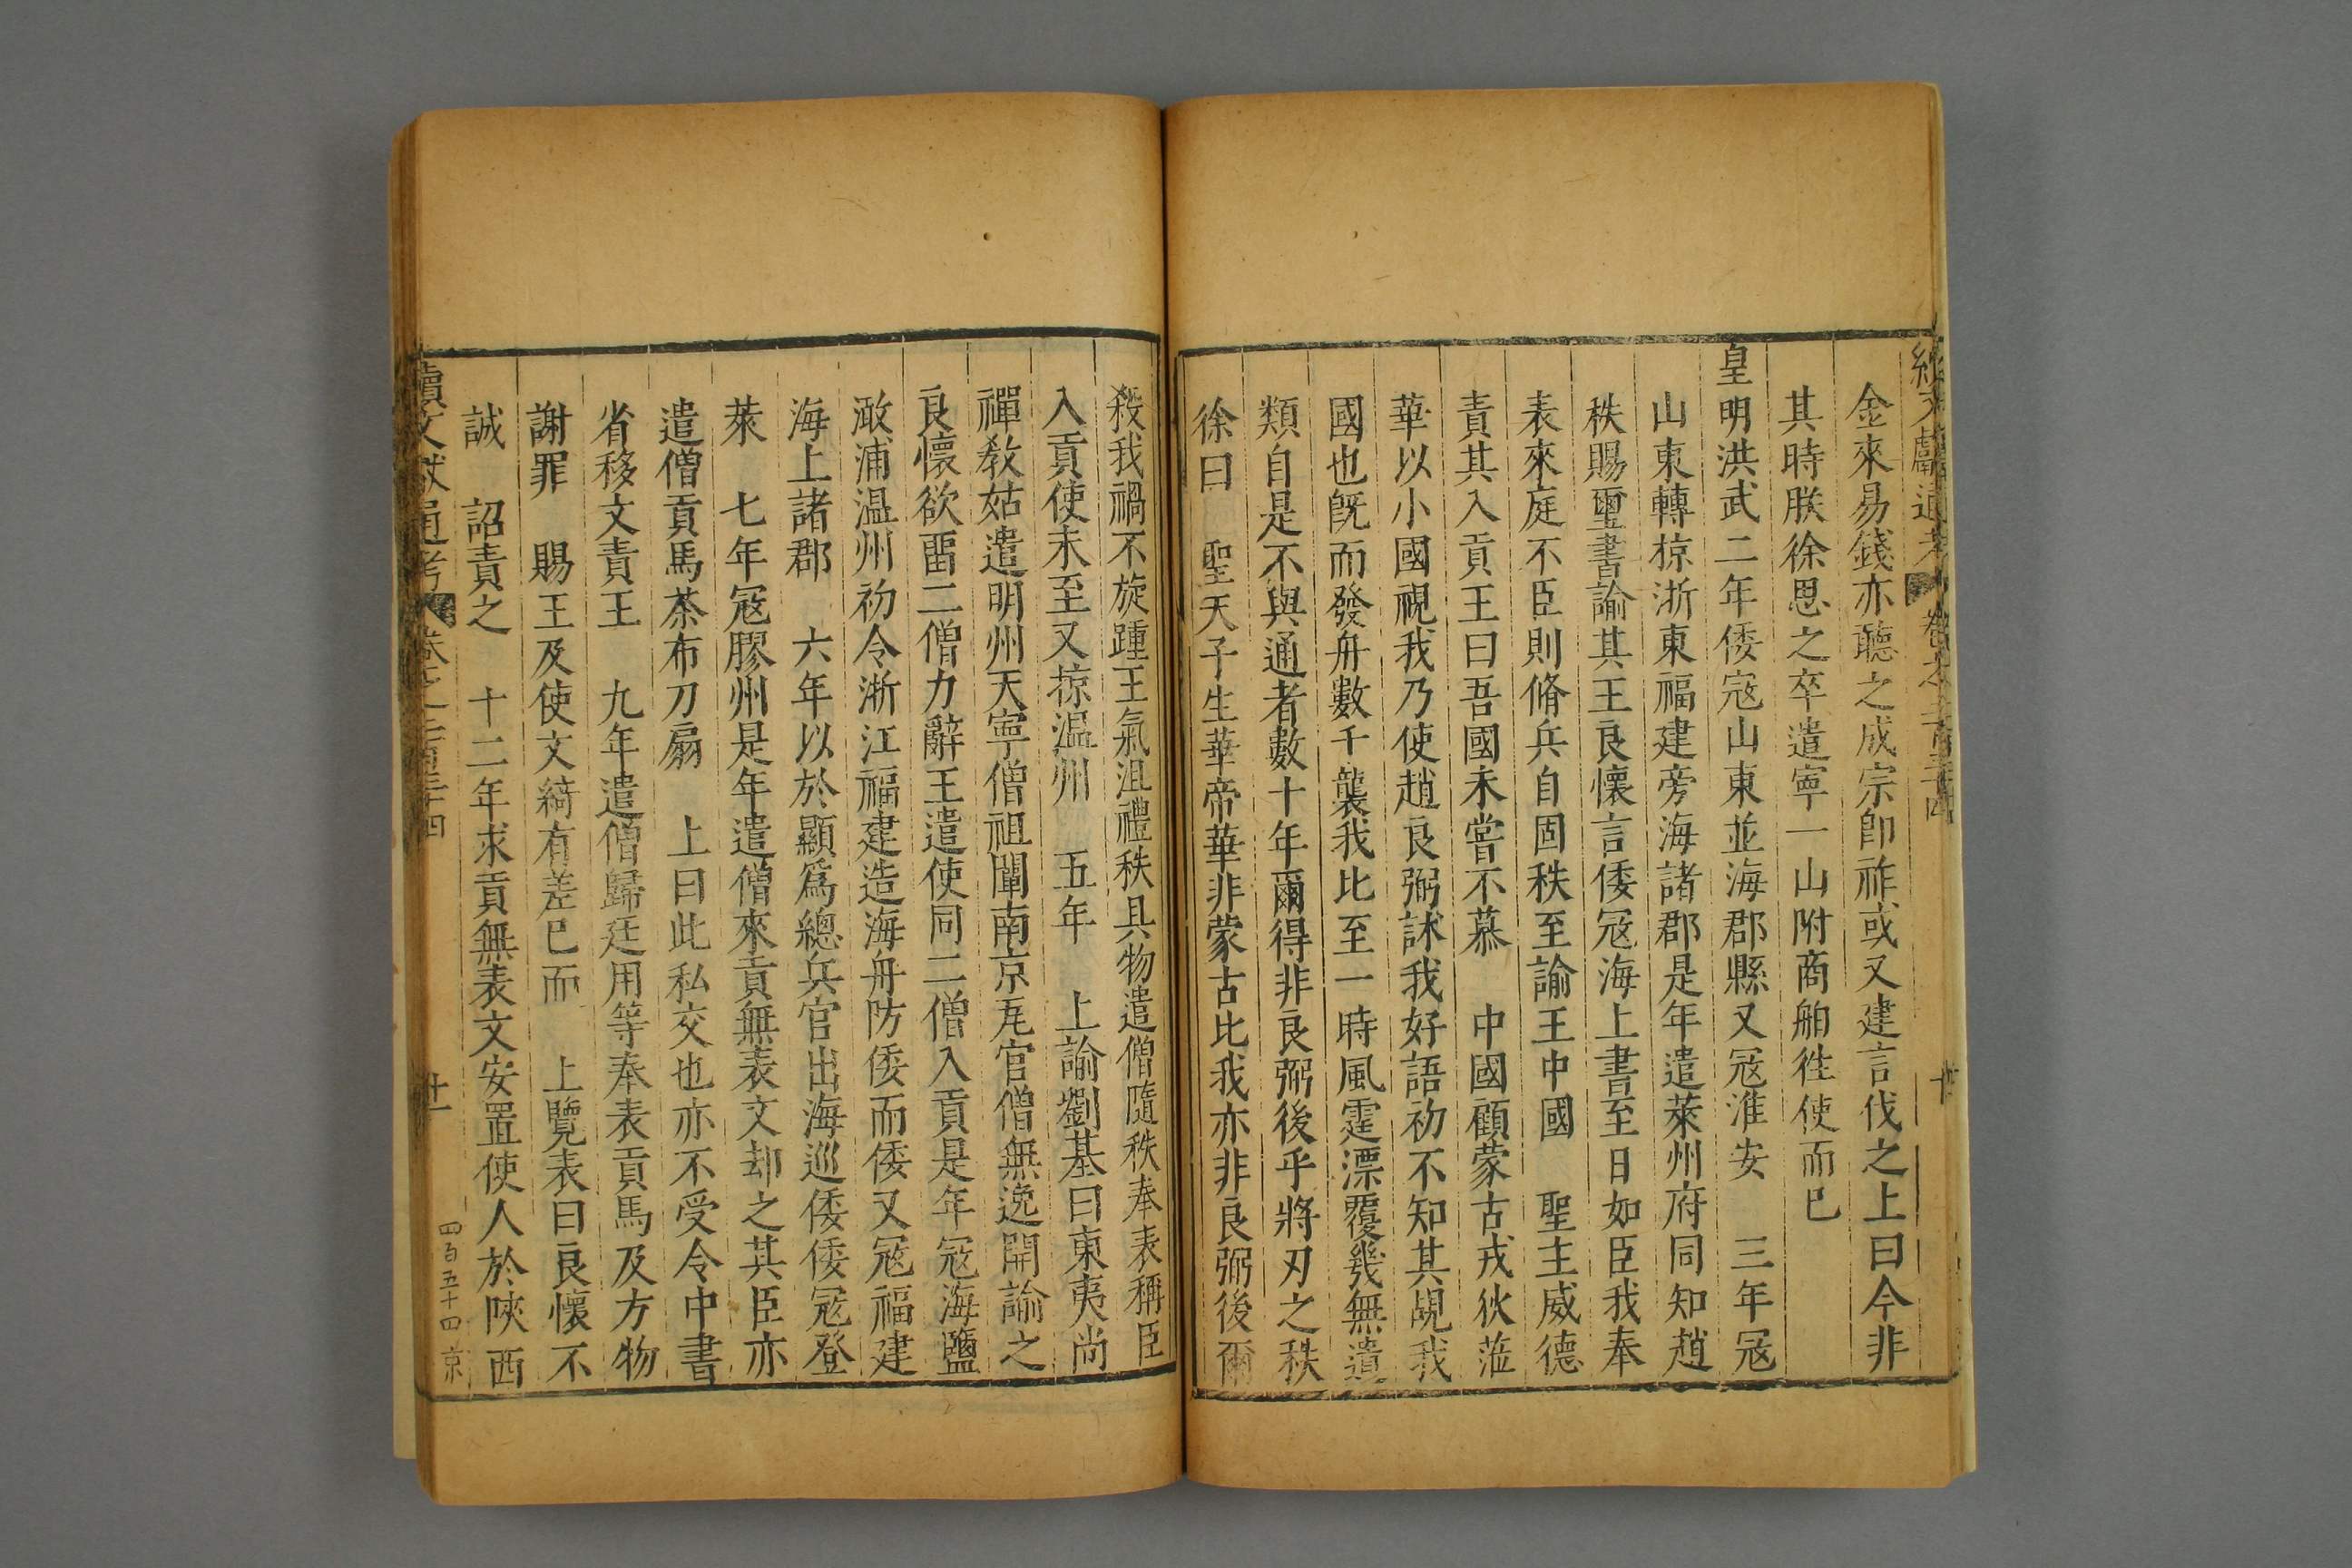 續文獻通考 卷之二百三十四 十
金來易錢亦聽之成宗卽祚或又建言伐之上曰今非
其時朕徐思之卒遣寧一山附商舶徃使而已
皇明洪武二年倭寇山東並海郡縣又冦淮安 三年冦
山東轉掠浙東福建旁海諸郡是年遣萊州府同知趙
秩賜璽書諭其王良懷言倭冦海上書至日如臣我奉
表來庭不臣則脩兵自固秩至諭王中國 聖主威德
責其入貢王曰吾國未嘗不慕 中國顧蒙古戎狄蒞
華以小國視我乃使趙良弼訹我好語初不知其覘我
國也旣而發舟數千襲我比至一時風霆漂覆幾無遺
類自是不與通者數十年爾得非良弼後乎將刃之秩
徐曰 聖天子生華帝華非蒙古比我亦非良弼後爾
殺我禍不旋踵王氣沮禮秩具物遣僧隨秩奉表稱臣
入貢使未至又掠温州 五年 上諭劉基曰東夷尚
禪敎姑遣明州天寧僧祖闡南京瓦官僧無逸開諭之
良懷欲畱二僧力辭王遣使同二僧入貢是年冦海鹽
澉浦温州初令浙江福建造海舟防倭而倭又冦福建
海上諸郡 六年以於顯爲總兵官出海巡倭倭冦登
萊 七年冦膠州是年遣僧來貢無表文却之其臣亦
遣僧貢馬茶布刀扇 上曰此私交也亦不受令中書
省移文責王 九年遣僧歸廷用等奉表貢馬及方物
謝罪 賜王及使文綺有差已而 上覽表曰良懷不
誠 詔責之 十二年求貢無表文安置使人於陝西
續文獻通考 卷之二百三十四 十一 四百五十四 京